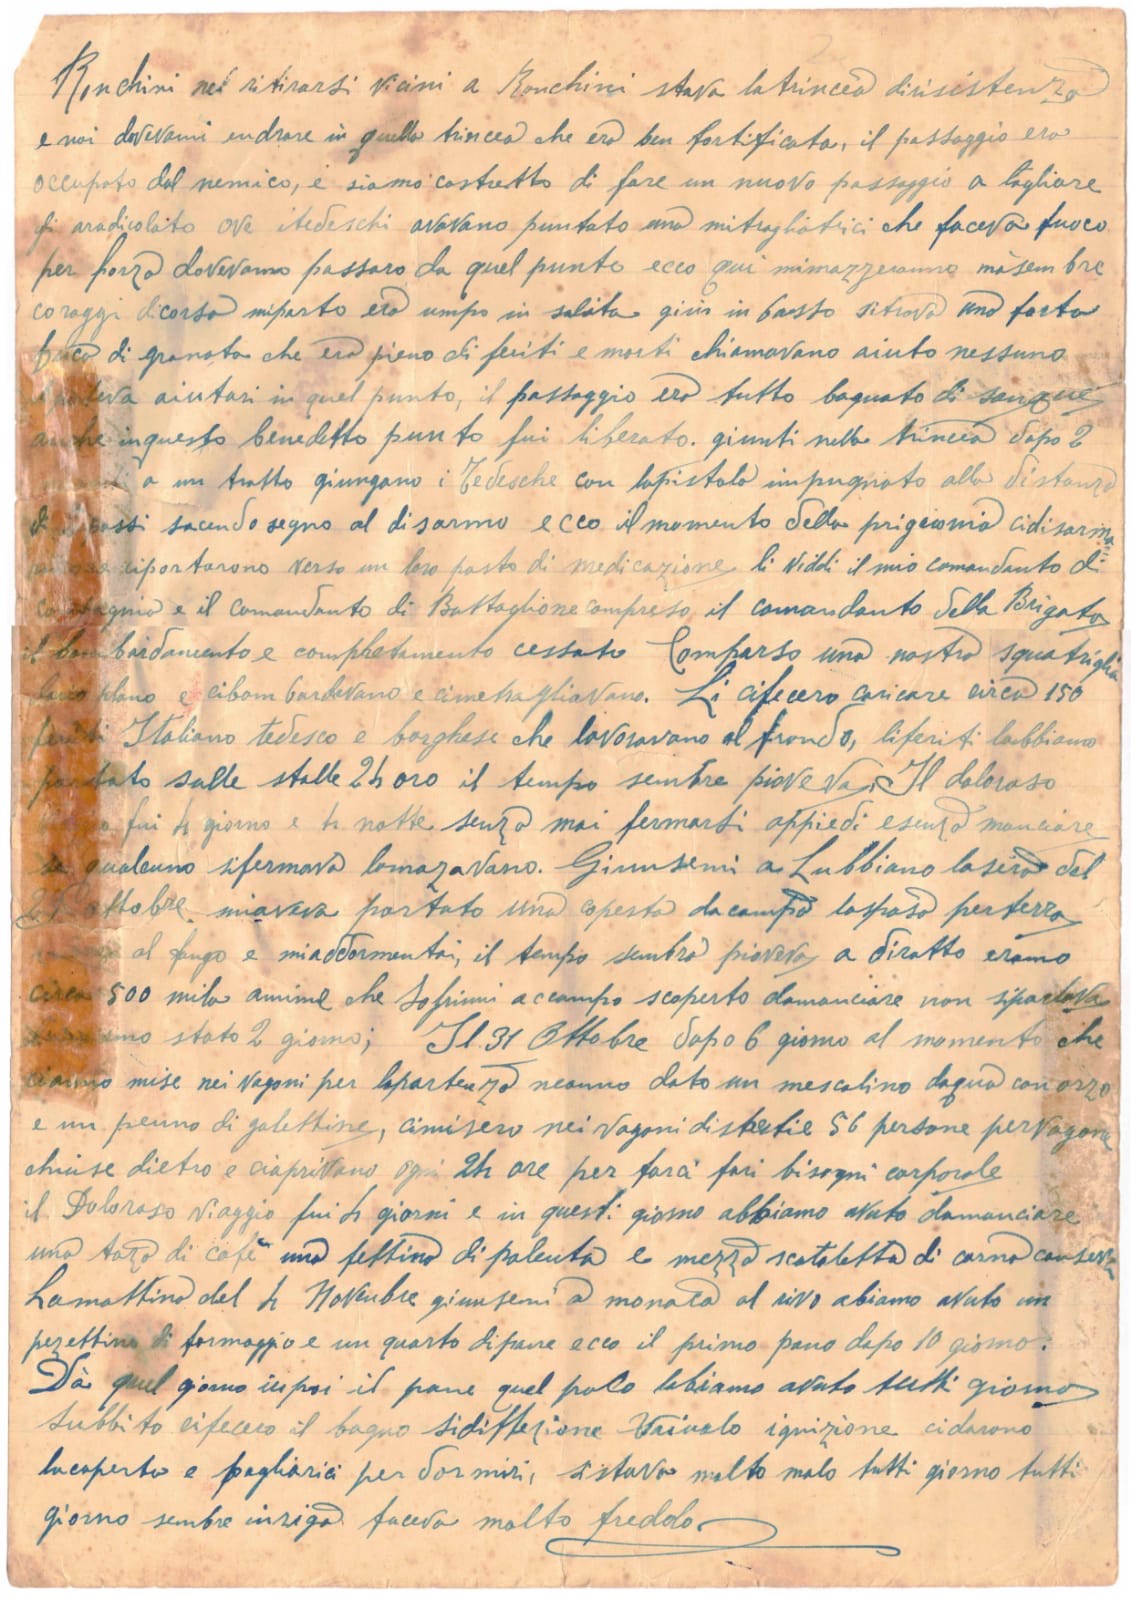 Ronchini nel ritirarsi vicini a Ronchini stava latrincea diresistenza
e noi dovevami endrare in quella trincea che era ben fortificata, il passaggio era
occupato dal nemico, e siamo costretto di fare un nuovo passaggio a tagliare
di aradicolato ove itedeschi avavano puntato una mitragliatrici che faceva fuoco
per forza dovevamo passaro da quel punto ecco qui mimazzeranno ma sembre
coraggi dicorsa miparto era umpo in salita giur in basso sitrova una forta
buca di granata che era pieno di feriti e morti chiamavano aiuto nessuno
poteva aiutari in quel punto, il passaggio era tutto bagnato di sangue
anche inquesto benedetto punto fui liberato. giunti nella trincea dopo 2
a un tratto giungano i Tedesche con lapistola impugnato alla distanza
di passi facendo segno al disarmo ecco il momento della prigionia cidisarma
ciportarono verso un loro posto di medicazione li viddi il mio comandanto di
compagnia e il comandanto di Battaglione compreso il comandanto della Brigata
il bombardamento e completamento cessato Comparso una nostra squatriglia
plano e cibombardavano e cimetragliavano. Li cifecero caricare circa 150
feriti Italiano tedesco e borghese che lavoravano al frondo, liferiti labbiamo
portato sulle stalle 24 oro il tempo sembre pioveva, Il doloroso
fui 4 giorno e 4 notte senza mai fermarsi appiedi esenza manciare
se qualcuno sifermava lamazavano. Giunsemi a Lubbiano lasera del
29 ottobre miavava portato una coperta dacampo laspasa perterra
al fango e miaddormentai, il tempo sembra pioveva a diratto eramo
circa 500 mila anime che sofrimi accampo scoperto damanciare non siparlava
stato 2 giorno; Il 31 Ottobre dopo 6 giorno al momento che
cianno mise nei vagoni per lapartenza neanno dato un mescolino daqua con orzo
e un penno di galettine, cimisero nei vagoni distestie 56 persone pervagone
chiuse dietro e ciaprivano ogni 24 ore per farci fari bisogni corporale
il Doloroso viaggio fui 4 giorni e in questi giorno abbiamo avuto damanciare
una taza di cafè una fettina di palenta e mezza scatoletta di carna conserva
Lamattina del 4 Novembre giunsemi a monaca al rivo abiamo avuto un
pezettino di formaggio e un quarto dipane ecco il primo pano dopo 10 giorno.
Dà quel giorno inpoi il pane quel poco labiamo avuto tutti giorno
Subbito cifecero il bagno sidiffezione Vaivolo ignizione cidarono
lacoperta e pagliarici per dormiri, sistava molto malo tutti giorno tutti
giorno sembre inriga faceva molto freddo